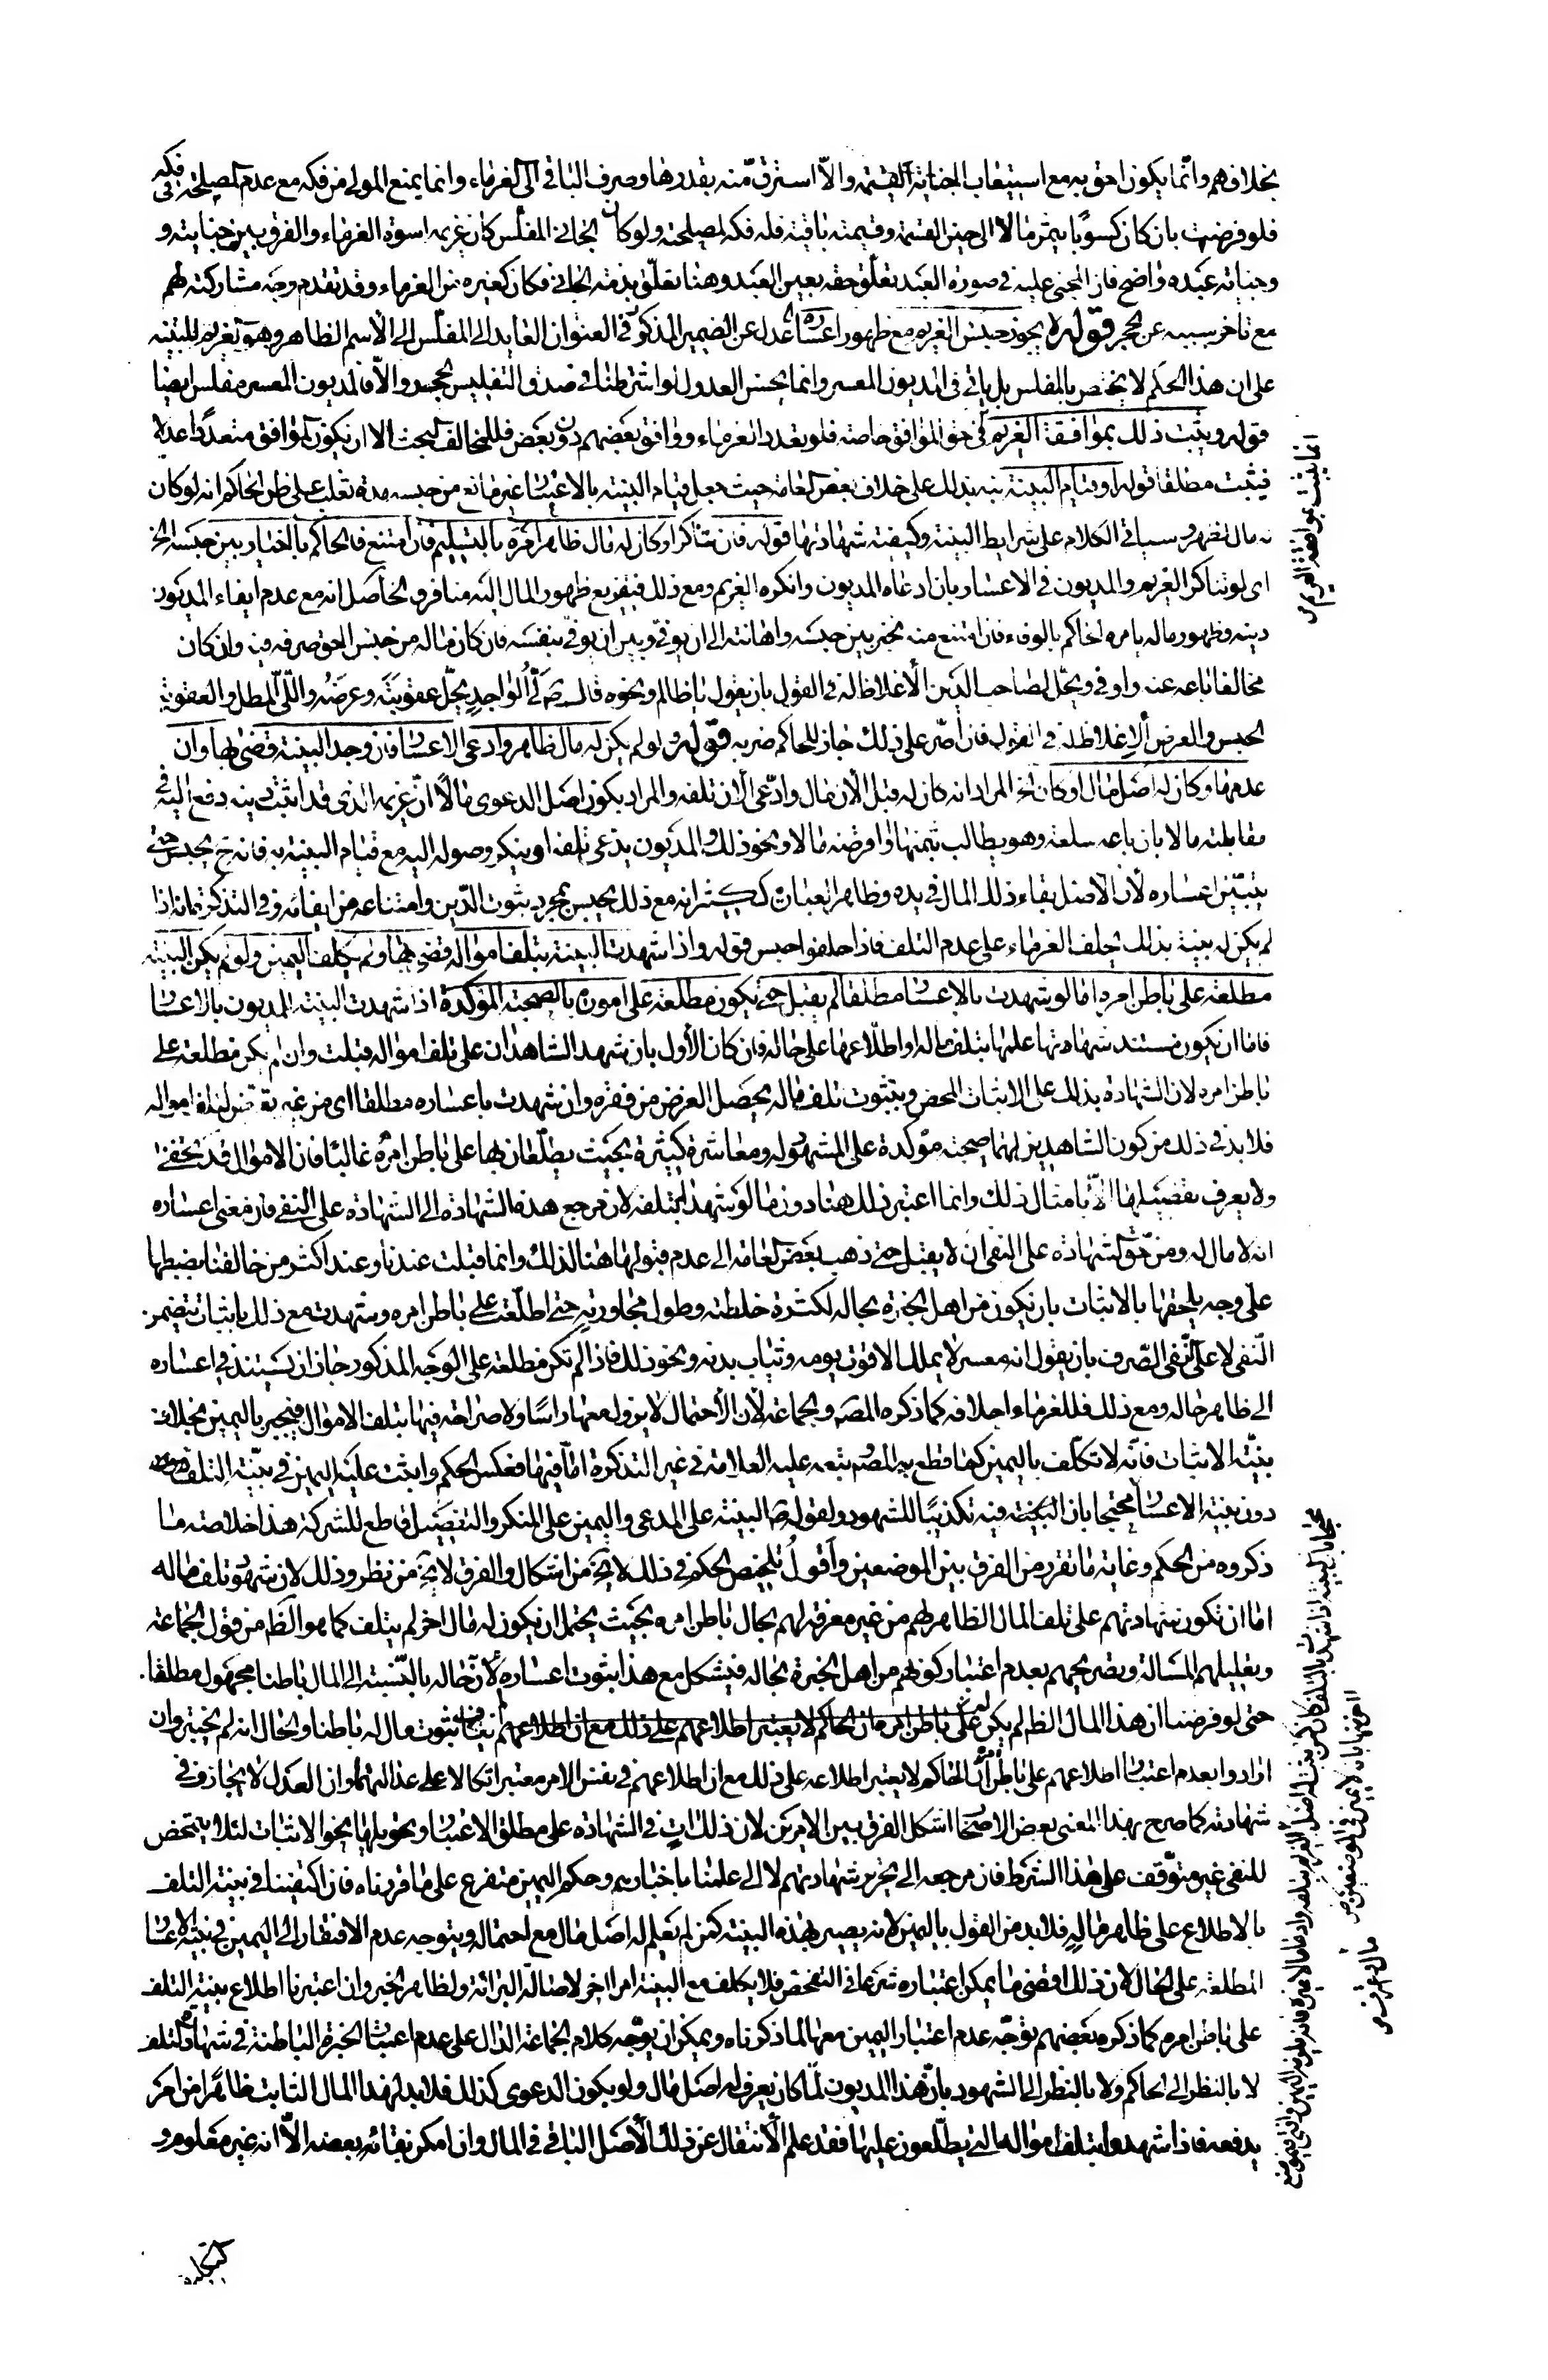 بخلافهم وانما يكون احق به مع استيعاب الجناية القيمة والا استرق منه بقدرها وصرف الباقي الى الغرماء وانما يمنع المولى من فكه مع عدم المصلحة في فكه
فلو فرضت بان كان كسوبا يثمر مالا الى حين القسمة وقيمته باقية فله فكه لمصلحته ولو كان الجاني المفلس كان غريمه اسوة الغرماء والفرق بين جنايته و
وجناية عبده واضح فان المجني عليه في صورة العبد تعلق حقه بعين العبد وهنا تعلق بذمة الجاني فكان كغيره من الغرماء وقد تقدم وجه مشاركته لهم
مع تاخر سببه عن الحجر قوله لا يجوز حبس الغريم مع ظهور اعساره عدل عن الضمير المذكور في العنوان العايد الى المفلس الى الاسم الظاهر وهو الغريم للتنبيه
على ان هذا الحكم لا يختص بالمفلس بل ياتي في المديون المعسر وانما يحسن العدول لو اشترطنا في صدق التفليس الحجر والا فالمديون المعسر مفلس ايضا
قوله ويثبت ذلك بموافقة الغريم في حق الموافق خاصة فلو تعدد الغرماء ووافق بعضهم دون بعض فللمخالف البحث الا ان يكون الموافق متعددا عدلا
فيثبت مطلقا قوله او قيام البينة نبه بذلك على خلاف بعض العامة حيث جعل قيام البينة بالاعسار غير مانع من حبسه مدة يغلب على ظن الحاكم انه لو كان
له مال لظهر وسياتي الكلام على شرايط البينة وكيفية شهادتها قوله فان تناكرا وكان له مال ظاهر امره بالتسليم فان امتنع فالحاكم بالخيار بين حبسه الخ
اى لو تناكر الغريم والمديون في الاعسار بان ادعاه المديون وانكره الغريم ومع ذلك فتفريع ظهور المال اليه منافر والحاصل انه مع عدم ايفاء المديون
دينه وظهور ماله يامره الحاكم بالوفاء فان امتنع منه تخير بين حبسه واهانته الى ان يوفي وبين ان يوفي بنفسه فان كان ماله من جنس الحق صرفه فيه وان كان
مخالفا باعه عنه واوفى ويحل لصاحب الدين الاغلاظ له في القول بان يقول يا ظالم ونحوه قال ص لي الواجد يحل عقوبته وعرضه واللي المطل والعقوبة
الحبس والعرض الاغلاظ له في القول فان اصر على ذلك جاز للحاكم ضربه قوله ولو لم يكن له مال ظاهر وادعى الاعسار فان وجد البينة قضى بها وان
عدمها وكان له اصل مال او كان الخ المراد انه كان له قبل الان مال وادعى الان تلفه والمراد بكون اصل الدعوى مالا ان غريمه الذى قد اثبت دينه دفع اليه في
مقابلته مالا بان باعه سلعة وهو يطالب بثمنها او اقرضه مالا ونحو ذلك والمديون يدعى تلفه او ينكر وصوله اليه مع قيام البينة به فانه ح يحبس حتى
يتبين اعساره لان الاصل بقاء ذلك المال في يده وظاهر العبارة ككثير انه مع ذلك يحبس بمجرد ثبوت الدين وامتناعه من ايفائه وفي التذكرة فانه اذا
لم يكن له بينة بذلك يحلف الغرماء على عدم التلف فاذا حلفوا حبس قوله واذا شهدت البينة بتلف امواله قضى بها ولم يكلف اليمين ولو لم يكن البينة
مطلعة على باطن امره اما لو شهدت بالاعسار مطلقا لم يقبل حتى يكون مطلعة على اموره بالصحبة المؤكدة اذا شهدت البينة للمديون بالاعسار
فاما ان يكون مستند شهادتها علمها بتلف ماله او اطلاعها على حاله فان كان الاول بان شهد الشاهدان على تلف امواله قبلت وان لم يكن مطلعة على
باطن امره لان الشهادة بذلك على الاثبات المحض وبثبوت تلف ماله يحصل الغرض من فقره وان شهدت باعساره مطلقا اى من غير تعرض لتلف امواله
فلا بد في ذلك من كون الشاهدين لهما صحبة مؤكدة على المشهود له ومعاشرة كثيرة بحيث يطلعان بها على باطن امره غالبا فان الاموال قد تخفى
ولا يعرف تفصيلها الا بامثال ذلك وانما اعتبر ذلك هنا دون ما لو شهدا بتلفه لان مرجع هذه الشهادة الى الشهادة على النفي فان معنى اعساره
انه لا مال له ومن حق الشهادة على النفي ان لا يقبل حتى ذهب بعض العامة الى عدم قبولها هنا لذلك وانما قبلت عندنا وعند اكثر من خالفنا بضبطها
على وجه يلحقها بالاثبات بان يكون من اهل الخبرة بحاله لكثرة خلطته وطول مجاورته حتى اطلعت على باطن امره وشهدت مع ذلك باثبات يتضمن
النفي لا على النفي الصرف بان يقول انه معسر لا يملك الا قوت يومه وثياب بدنه ونحو ذلك فاذا لم تكن مطلعة على الوجه المذكور جاز ان يستند في اعساره
الى ظاهر حاله ومع ذلك فللغرماء احلافه كما ذكره المصه والجماعة لان الاحتمال لا يزول معها راسا ولا صراحة فيها بتلف الاموال فيجبر باليمين بخلاف
بينة الاثبات فانه لا تكلف باليمين كما قطع به المصه وتبعه عليه العلامة في غير التذكرة اما فيها فعكس الحكم واثبت عليه اليمين في بينة التلف
دون بينة الاعسار محتجا بان البحث فيه تكذيبا للشهود ولقوله ص البينة على المدعى واليمين على المنكر والتفصيل قاطع للشركة هذا خلاصة ما
ذكروه من الحكم وغاية ما تقرر من الفرق بين الموضعين واقول تلخيص الحكم في ذلك لا يخ من اشكال والفرق لا يخ من نظر وذلك لان شهود تلف ماله
اما ان تكون شهادتهم على تلف المال الظاهر لهم من غير معرفة لهم بحال باطن امره بحيث يحتمل ان يكون له مال اخر لم يتلف كما هو الظ من قول الجماعة
وتعليلهم المسالة وتصريحهم بعدم اعتبار كونهم من اهل الخبرة بحاله فيشكل مع هذا ثبوت اعساره لان حاله بالنسبة الى المال باطنا مجهول مطلقا
حتى لو فرضنا ان هذا المال الظ لم يكن له
ارادوا بعدم اعتبار اطلاعهم على باطن امره ان الحاكم لا يعتبر اطلاعه على ذلك مع ان اطلاعهم في نفس الامر معتبر اتكالا على عدالتهما وان العدل لا يجازف في
شهادته كما صرح بهذا المعنى بعض الاصحاب اشكل الفرق بين الامرين لان ذلك ات في الشهادة على مطلق الاعسار وتحويلها نحو الاثبات لئلا يتمحض
للنفى غير متوقف على هذا الشرط فان مرجعه الى تحرير شهادتهم لا الى علمنا باختبارهم وحكم اليمين متفرع على ما قررناه فان اكتفينا في بينة التلف
بالاطلاع على ظاهر ماله فلا بد من القول باليمين لانه يصير بهذه البينة كمن لم يعلم له اصل مال مع احتماله ويتوجه عدم الافتقار الى اليمين في بينة الاعسار
المطلعة على الحال لان ذلك اقصى ما يمكن اعتباره شرعا في التفحص فلا يكلف مع البينة امرا اخر لاصالة البرائة ولظاهر الخبر وان اعتبرنا اطلاع بينة التلف
على باطن امره كما ذكره بعضهم توجه عدم اعتبار اليمين معها لما ذكرناه ويمكن ان يوجه كلام الجماعة الدال على عدم اعتبار الخبرة الباطنة في شهادة التلف
لا بالنظر الى الحاكم ولا بالنظر الى الشهود بان هذا المديون لما كان يعرف له اصل مال ولو بكون الدعوى كذلك فلا بد لهذا المال الثابت ظاهرا من امر
يدفعه فاذا شهدوا بتلف امواله التي يطلعون عليها فقد علم الانتقال عن ذلك الاصل الباقي في المال وان امكن بقائه بعضه الا انه غير معلوم و
انما يثبت بموافقة الغريم ص